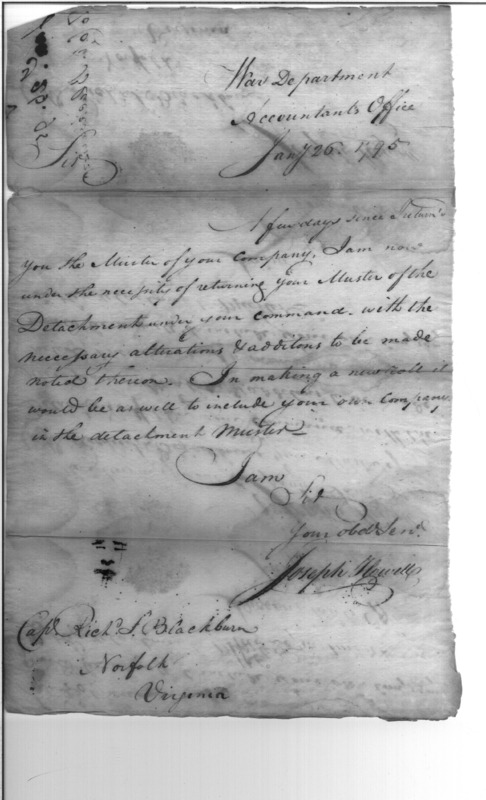 War Department
Accountants Office
Jany 26. 1795
Sir
A few days since I return'd
you the Muster of your Company, I am now
under the necessity of returning your Muster of the
Detachment under your command. with the
necessary altrations & additons to be made
noted thereon. In making a new roll it
would be as well to include your own Company,
in the detachment Muster
I am
Sir
Your obdt Servt
Joseph Howell
Capt. Richd. S. Blackburn
Norfolk
Virginia